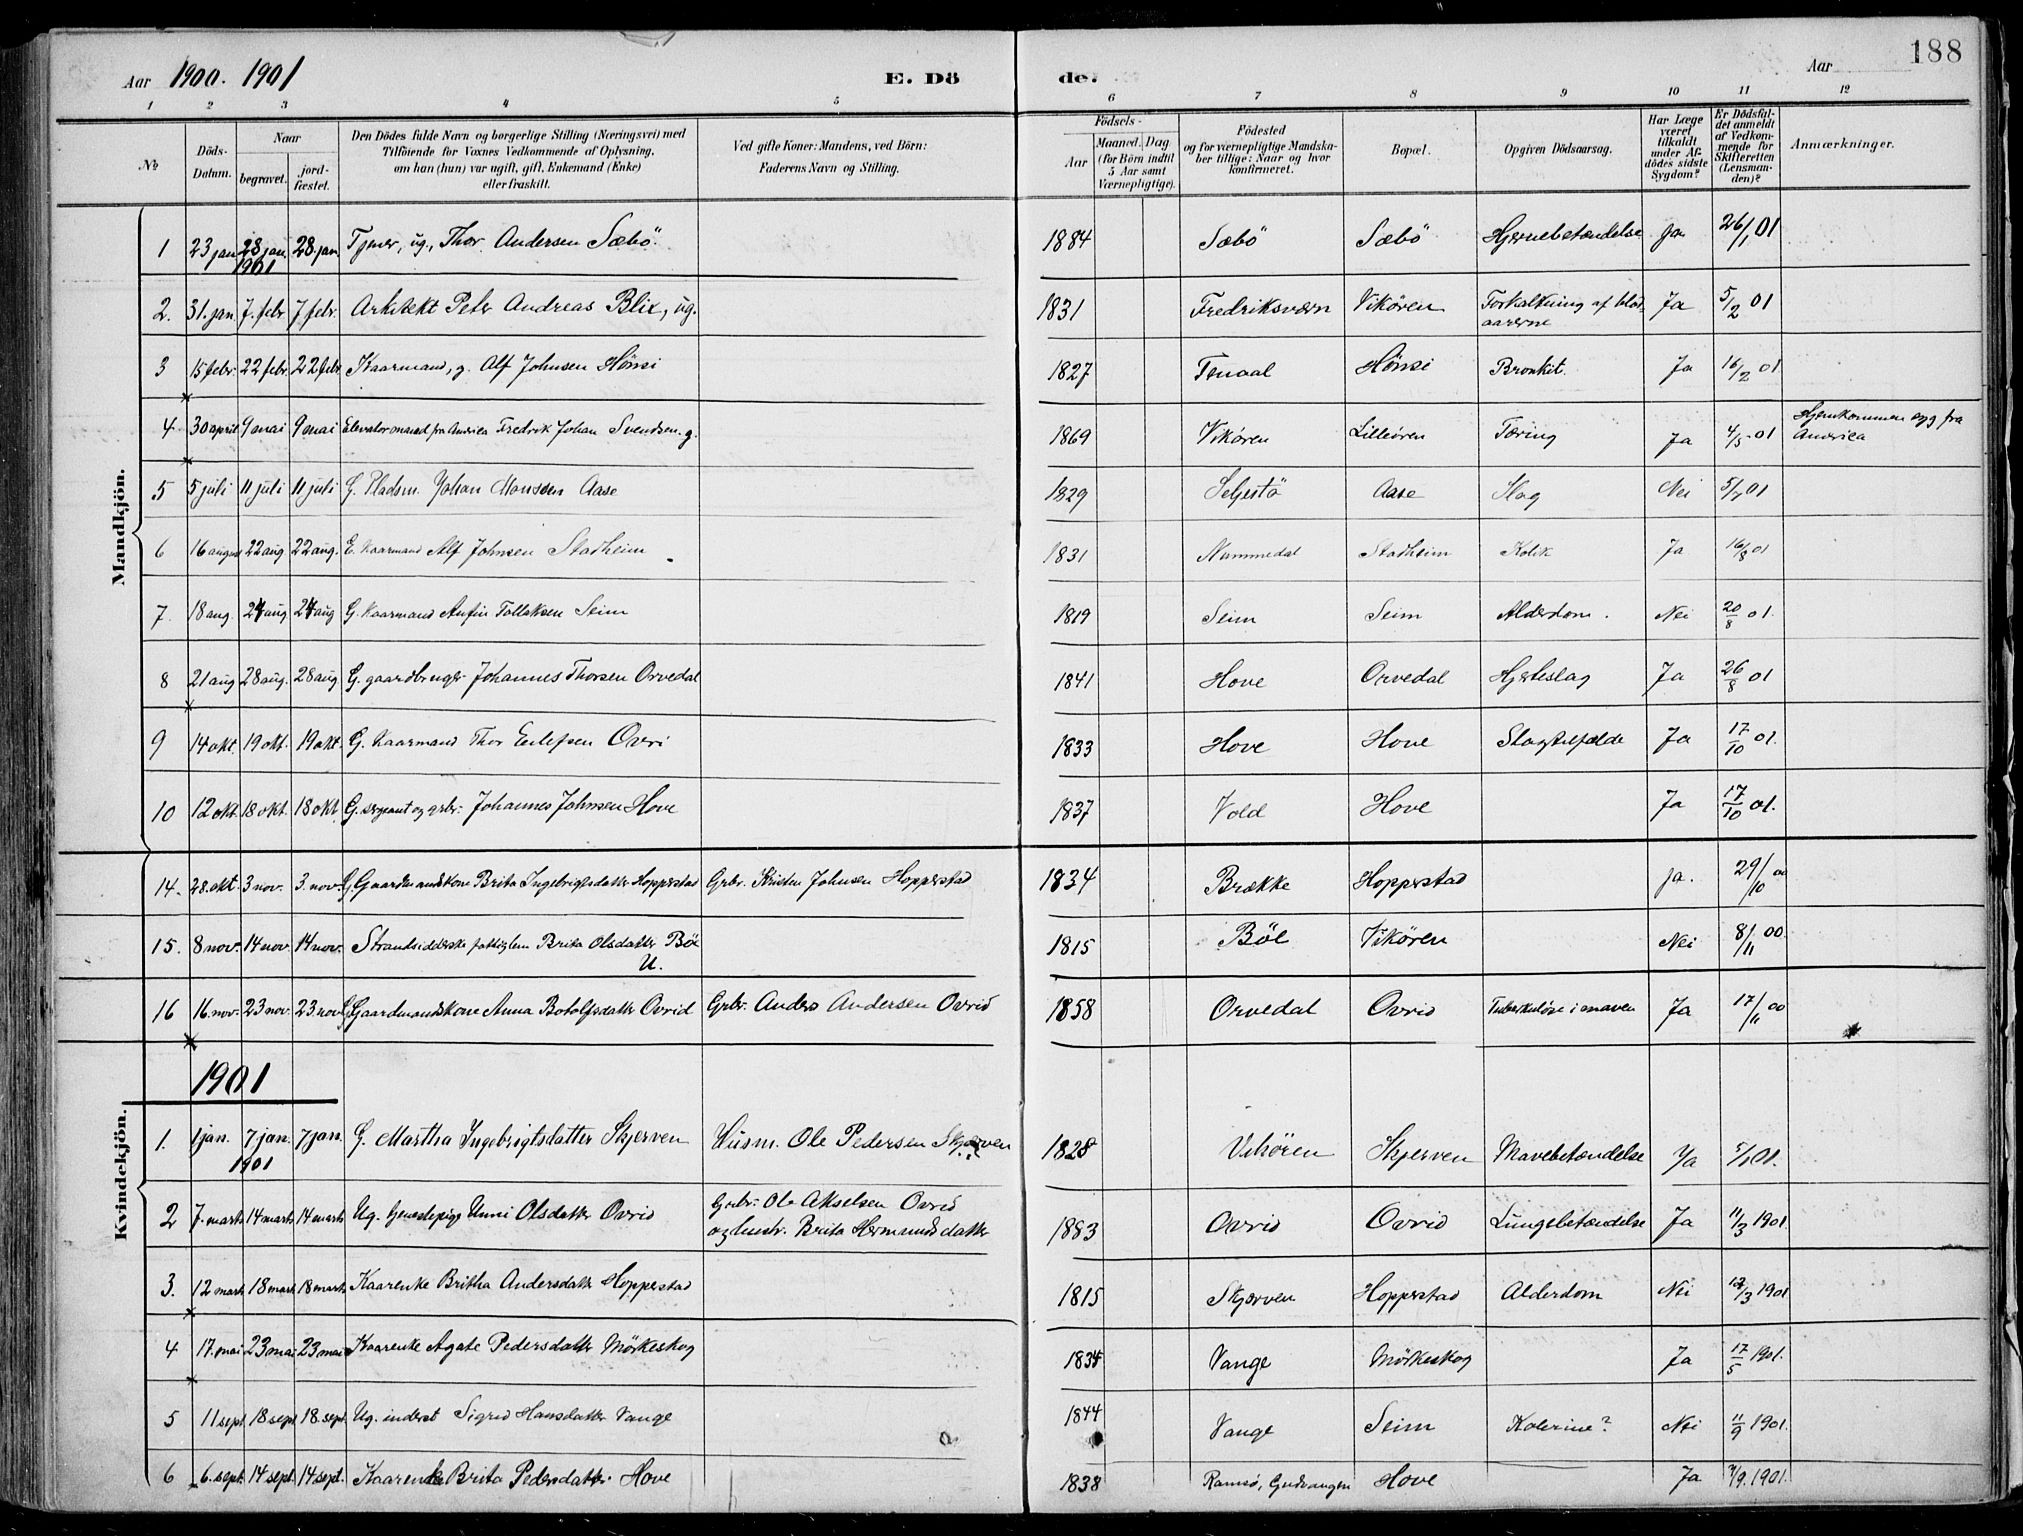 Aar 1900. 1901 E. Dö de. Aar 188
1 2 3 4 5 6 7 8 9 10 11 12
No
Döds-Datum.
Naar
begravet. jord-fæstet.
Den Dödes fulde Navn og borgerlige Stilling (Næringsvei) med
Tilföiende for Voxnes Vedkommende af Oplysning,
om han (hun) var ugift, gift, Enkemand (Enke)
eller fraskilt.
Ved gifte Koner: Mandens, ved Börn:
Faderens Navn og Stilling.
Födsels-
Aar Maaned. Dag.
(for Börn indtil
5 Aar samt
Værnepligtige).
Födested
og for værnepligtige Mandska-
ber tillige: Naar og hvor
konfirmeret.
Bopæl.
Opgiven Dödsaarsag.
Har Læge
været
tilkaldt
under Af-
dödes sidste
Sygdom?
Er Dödsfal-
det anmeldt
af Vedkom-
mende for
Skifteretten
(Lensman-
den)?
Anmærkninger.
Mandkjön.
1 23 jan 28 jan. 1901 28. jan. Tjener, ug., Thor Andersen Sæbö. 1884 Sæbö Sæbö Hjernebetændelse Ja 26/1 01
2. 31. jan. 7. febr. 7. febr. Arkitekt Peter Andreas Blix, ug. 1831 Fredriksværn Vikören Forkalkning af blod-
aarerne Ja 5/2 01
3 15 febr. 22 febr. 22 febr. Kaarmand, g. Alf Johnsen Hönsi 1827 Hönsi Bronkit. Ja 16/2 01
4 30 april 9 mai 9 mai Elevatormand fra Amerika Fredrik Johan Svendsen. g. 1869 Vikören Lilleören Tæring Ja 4/5 01 Hjemkommen syg fra
Amerika
5 5 juli 11 juli 11 juli G. Pladsm. Johan Monssen Aase 1829 Seljestö Aase Slag Nei 5/7 01
6 16 august 22 aug 22 aug. E. Kaarmand Alf Johnsen Stadheim 1831 Nummedal Stadheim Kolik Ja 16/8 01
7. 18 aug. 24 aug 24 aug G. Kaarmand Anfin Tollaksen Seim 1819 Seim Seim Alderdom. Nei 20/8 01.
8 21 aug 28 aug. 28 aug. G. gaardbruger Johannes Thorsen Orvedal 1841 Hove Orvedal Hjerteslag Ja 26/8 01
9 14 okt. 19 okt. 19 okt. G. Kaarmand Thor Ovri 1833 Hove Hove Slagtilfælde Ja 17/10 01.
10 12 okt. 18 okt. 18 okt G. sergeant og grbr. Johannes Johnsen Hove 1837 Vold Hove Ja 17/10 01.
14. 28. okt. 3 nov. 3. nov. G. Gaardmandskone Brita Ingebrigtsdatter Hopperstad Grbr. Kristen Johnsen Hopperstad 1834 Brække Hopperstad Ja. 29/10 00
15. 8 nov. 14 nov. 14 nov. Strandsidderske fattiglem Brita Olsdatter Böe
U. 1815 Böe Vikören Nei 8/11 00.
16 16. nov. 23 nov. 23. nov. G. Gaardmandskone Anna Botolfsdatter Ovrid Grbr. Anders Andersen Ovrid 1858 Orvedal Ovrid Tuberkulöse i maven Ja 17/11 00
1901
Kvindekjön.
1. 1 jan. 7 jan. 1901 7 jan. G. Martha Ingebrigtsdatter Skjerven Husm. Ole Pedersen Skjerven 1828 Vikören Skjerven Mavebetændelse Ja 5/1 01.
2 7. marts 14 marts 14 marts Ug. Unni Olsdatter Ovrid Grbr. Ole Akselsen Ovrid
og hustr. Brita Hermundsdatter 1883 Ovrid Ovrid Lungebetændelse Ja 11/3 1901
3. 12 marts 18 marts 18 marts Kaarenke Britha Andersdatter Hopperstad 1815 Skjerven Hopperstad Alderdom Nei 12/3 1901
4 17. mai 23 mai 23 mai Kaarenke Agate Pedersdatter Mörkeskog 1834 Vange Mörkeskog Ja 17/5 1901.
5 11 sept. 18 sept. 18. sept. Ug. inderst Sigrid Hansdatter Vange 1844 Vange Seim Kolerine? Nei 11/9 1901.
6 6. sept. 14 sept. 14 sept. Kaarenke Brita Pedersdatter Hove 1838 Ramsö, Gudvangen Hove Ja 7/9. 1901.